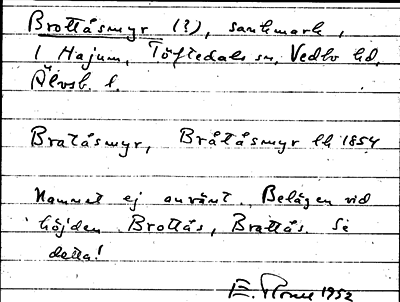 Brottåsmyr (?), sankmark,
i Hajum, Töftedals sn, Vedbo hd,
Älvsb. l.
Bratåsmyr, Bråtåsmyr lh 1854
Namnet ej använt. Belägen vid
höjden Brottås, Brattås. Se
detta!
E. 1952